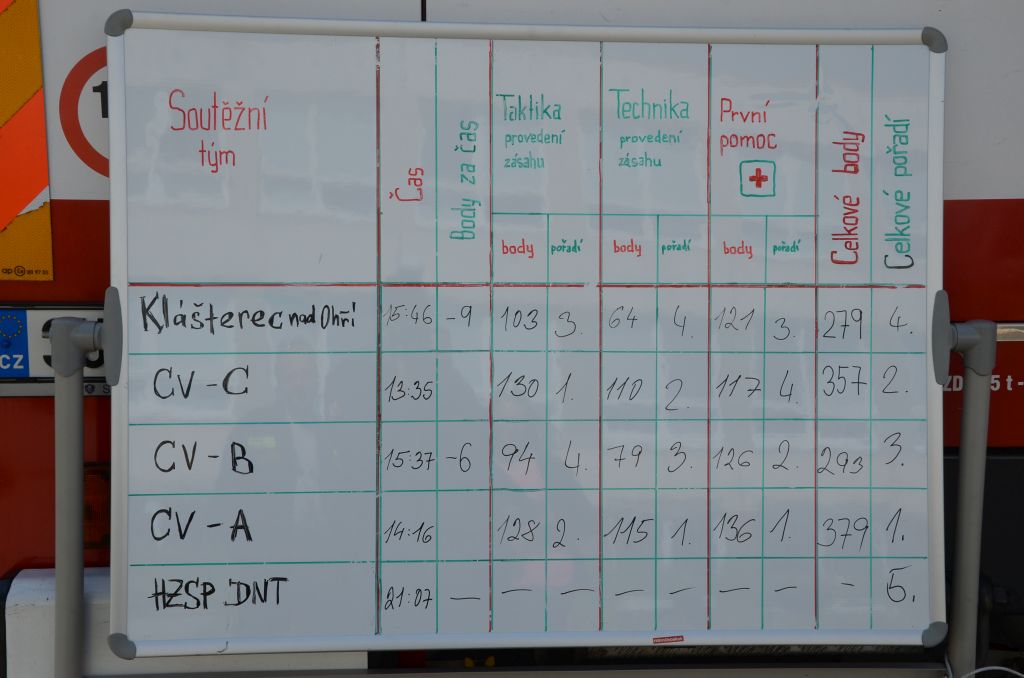 Soutěžní
tým
Čas
Body za čas
Taktika
provedení
zásahu
Technika
provedení
zásahu
První
pomoc
Celkové body
Celkové pořadí
body pořadí body pořadí body pořadí
Klášterec nad Ohří 15:46 -9 103 3. 64 4. 121 3. 279 4.
CV - C 13:35 130 1. 110 2. 117 4. 357 2.
CV - B 15:37 -6 94 4. 79 3. 126 2. 293 3.
CV - A 14:16 128 2. 115 1. 136 1. 379 1.
HZSP DNT 21:07 — — — — — — — - 5.
CZ
5 t -